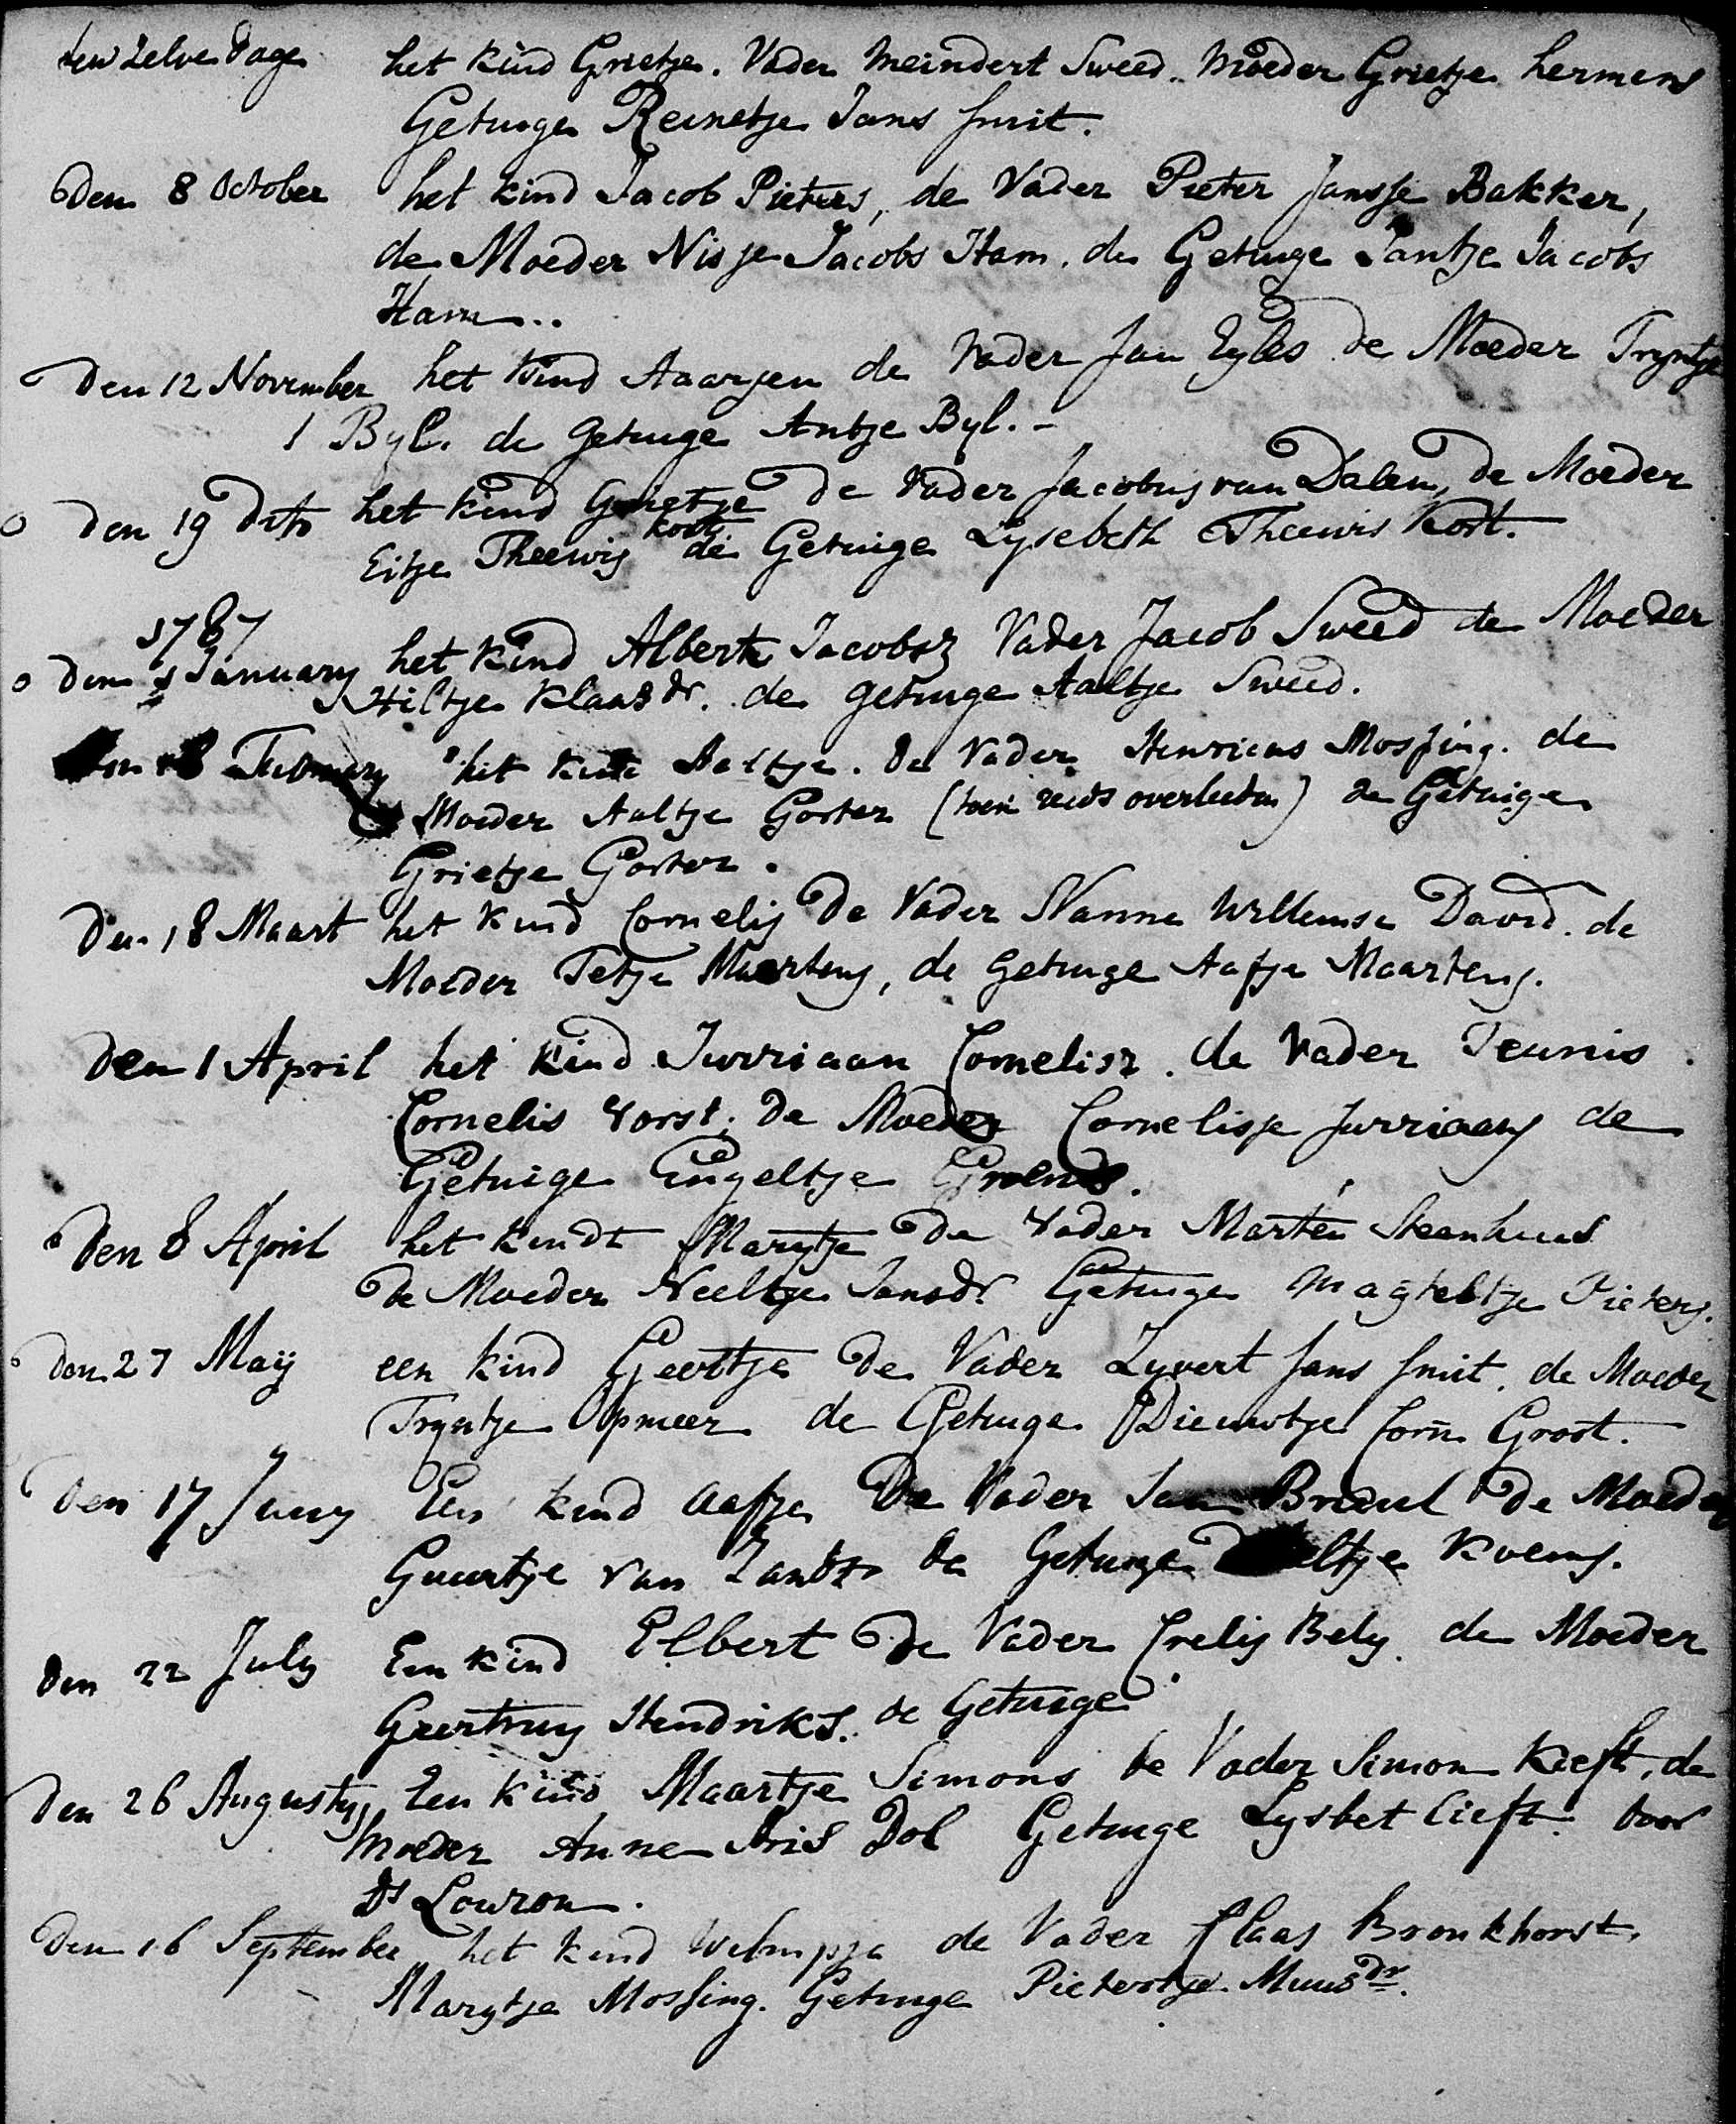 den zelve dage het kind Grietje. Vader Meindert Sweed. Moeder Grietje hermens
Getuige Reinetje Jans smit.
Den 8 October het kind Jacob Pieters, de Vader Pieter Jansse Bakker,
de Moeder Nisje Jacobs Ham. de Getuige Jantje Jacobs
Ham..
Den 12 November het kind Aaaryen de Vader Jan Eyles de Moeder Tryntje
Byl. de Getuige Antje Byl. -
Den 19 dito het kind Grietje De Vader Jacobus van Dalen, de Moeder
Eitje Theewis kost de Getuige Lysebeth Theewis Kost.
1787
Den January het kind Albert Jacobsz Vader Jacob Sweed de Moeder
Hiltje Klaasdr. de getuige Aaltje Sweed.
Den 18 February het kint Aaltje. De Vader Henricus Mossing. de
Moeder Aaltje Gorter (toen reeds overleeden) de Getuige
Grietje Gorter.
Den 18 Maart het kind Cornelis De Vader Nanne Willemse David. de
Moeder Tetje Maertens, de getuige Aafje Maartens.
Den 1 April het kind Jurriaan Cornelisz. de Vader Teunis
Cornelis Vorst. De Moeder Cornelisje Jurriaens de
Getuige Engeltje
Den 8 April het kindt Marytje De Vader Marten Steenhuis
De Moeder Neeltje Jansdr. Getuige Magteltje Pieters.
Den 27 Maij een kind Geertje De Vader Zyvert Jans smit. de Moeder
Tryntje Opmeer de Getuige Dieuwtje Corn. Groot.
Den 17 Juny Een kind Aafje De Vader Jan Breeul De Moeder
Guurtje van Zandt de Getuige Koems.
Den 22 July Een kind Elbert De Vader Crelis Bely. de Moeder
Geertruy Hendriks. de Getuige
Den 26 Augustus Een kind Maartje Simons de Vader Simon Kieft, de
Moeder Anne Aris Dol Getuige Lysbet Cieft. door
Ds Louron.
Den 16 September het kind Wilmpje de Vader Claas Bronkhorst.
Marytje Mossing. Getuige Pietertje Muusdr.